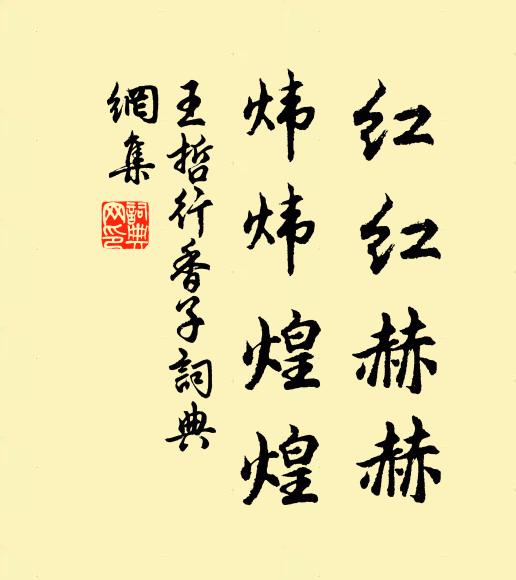 红红赫赫
炜炜煌煌
王哲行香子詞典
網集
詞典
网印